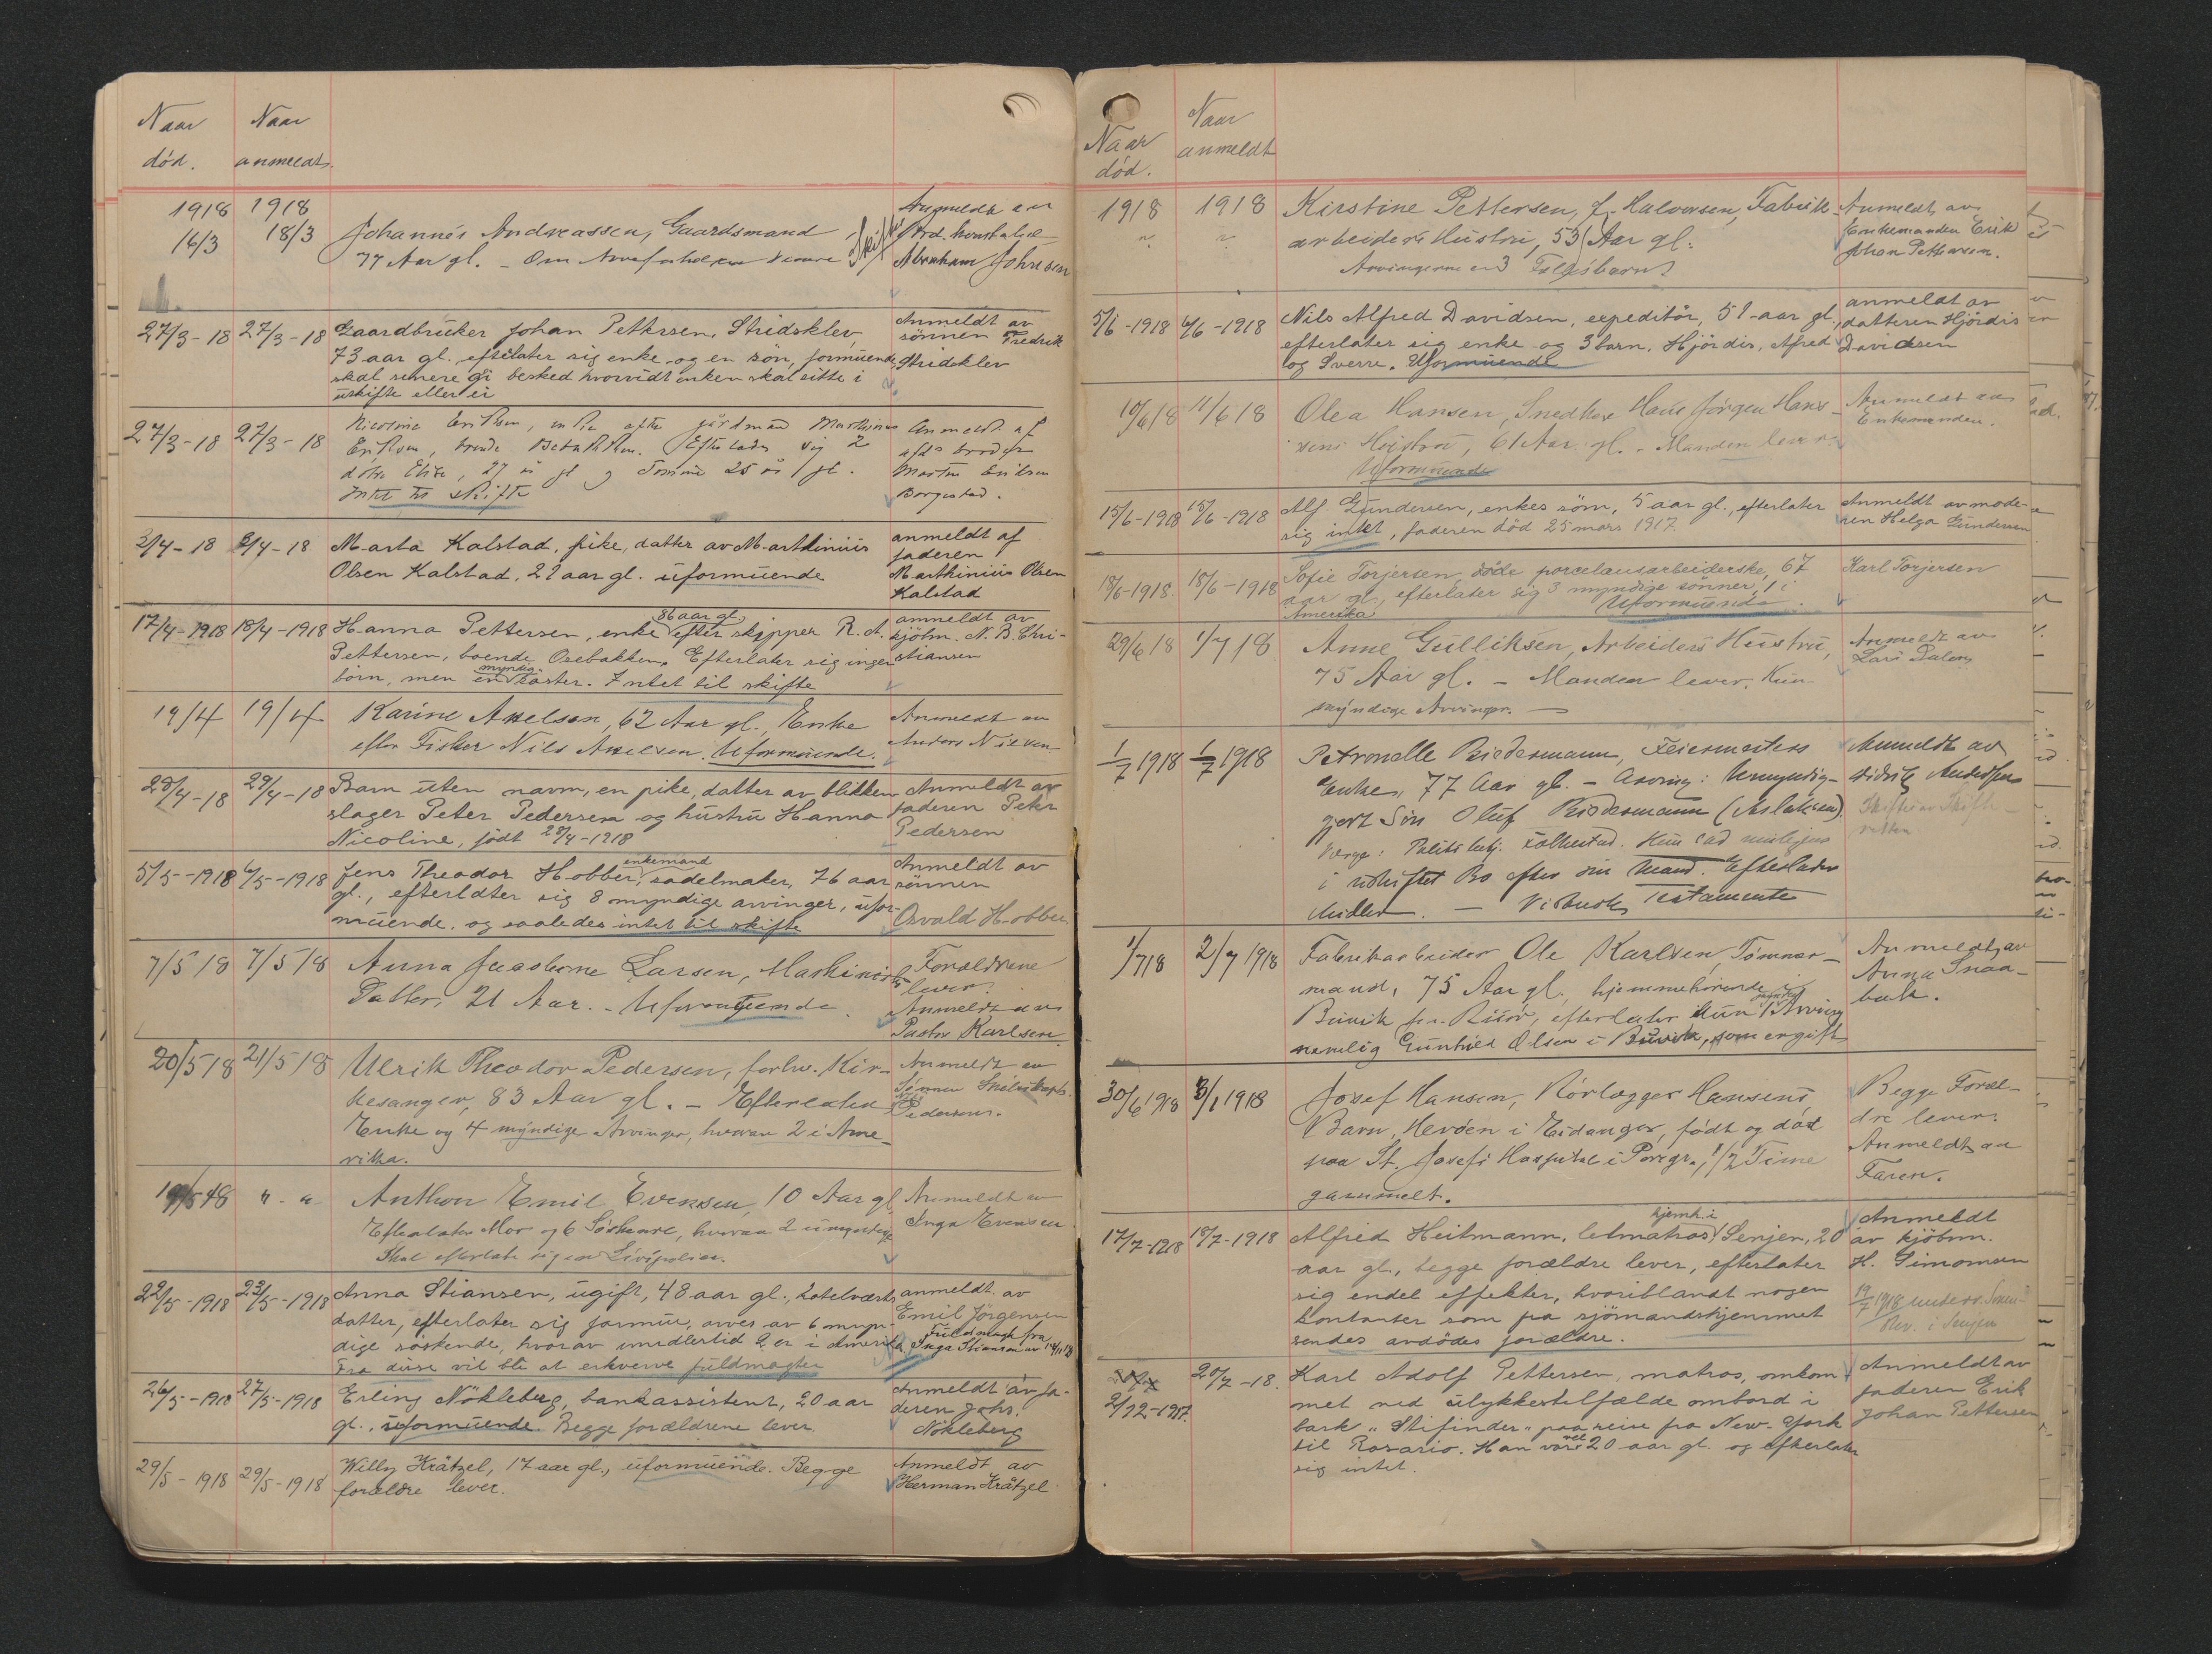 Naar Naar
død. anmeldt.
1918 1918
16/3 18/3 Johannes Andreassen, Gaardsmand
77 Aar gl. - Om senere
Anmeldt av
Abraham Johnsen
27/3-18 27/3-18 Gaardbruker Johan Pettersen, Stridsklev
73 aar gl., efterlater sig enke og en søn, formuende,
skal senere gi besked hvorvidt enken skal sitte i
uskifte eller ei
Anmeldt av
sønnen Fredrik
Stridsklev
27/3-18 27/3-18 Nicoline Eriksen, enke efter Marthinus
Eriksen, Efterlader sig 2
døtre Elise, 27 år gl og 25 år gl.
Intet til skifte
Anmeldt af
afds broder
Martin Eriksen
Borgestad.
2/4-18 2/4-18 Marta Kalstad, pike, datter av Marthinius
Olsen Kalstad, 21 aar gl. uformuende
anmeldt af
faderen
Marthinius Olsen
Kalstad
17/4-1918 18/4-1918 Hanna Pettersen, enke 86 aar gl. efter skipper R. A.
Pettersen, boende Osebakken. Efterlater sig ingen
børn, men en myndig søster. Intet til skifte
anmeldt av
kjøbm. N. B. Chri-
stiansen
19/4 19/4 Karine Axelsen, 62 Aar gl., Enke
efter Fisker Nils Axelsen. Uformuende.
Anmeldt av
Anders Nilsen
28/4-18 29/4-18 Barn uten navn, en pike, datter av blikken-
slager Peter Pedersen og hustru Hanna
Nicoline, født 28/4-1918
Anmeldt av
faderen Peter
Pedersen
5/5-1918 6/5-1918 Jens Theodor Hobber, enkemand sadelmaker, 76 aar
gl., efterlater sig 8 myndige arvinger, ufor-
muende, og saaledes intet til skifte
Anmeldt av
sønnen
Osvald Hobber
7/5 18 7/5 18 Anna Larsen, Maskinists
Datter, 21 Aar. - Uformuende.
Forældrene
lever.
Anmeldt av
Pastor Karlsen
20/5 18 21/5 18 Ulrik Theodor Pedersen, forhv. Kir-
kesanger, 83 Aar gl. - Efterlater
Enke og 4 myndige Arvinger, hvorav 2 i Ame-
rika.
Anmeldt av
Sønnen
Pedersen.
19/5 18 " - " Anthon Emil Evensen, 10 Aar gl
Efterlater Mor og 6 Søskende, hvorav 2 umyndige
Skal efterlate sig en Livspolise.
Anmeldt av
Inga Evensen
22/5-1918 23/5-1918 Anna Stiansen, ugift, 48 aar gl., hotelværts
datter, efterlater sig formue, arves av 6 myn-
dige søskende, hvorav imidlertid 2 er i Amerika
Fra disse vil bli at erkverve fuldmagter
anmeldt av
Emil Jørgensen
Fuldmagt fra
Inga Stiansen av
26/5-1918 27/5-1918 Erling Nökleberg, bankassistent, 20 aar
gl., uformuende. Begge forældrene lever
Anmeldt av fa-
deren Johs.
Nökleberg
29/5-1918 29/5-1918 Willy Krätzel, 17 aar gl., uformuende. Begge
forældre lever.
Anmeldt av
Herman Krätzel
Naar Naar
død. anmeldt
1918 1918 Kirstine Pettersen, f. Halvorsen, Fabrik-
" " arbeiders Hustru, 53 Aar gl.
Arvingerne er 3 Fællesbarn
Anmeldt av
Enkemanden Erik
Johan Pettersen.
5/6-1918 6/6-1918 Nils Alfred Davidsen, expeditør, 51 aar gl.,
efterlater sig enke og 3 barn, Hjördis, Alfred
og Sverre. Uformuende
anmeldt av
datteren Hjördis
Davidsen
10/6 18 11/6 18 Olea Hansen, Snedker Hans Jørgen Han-
sens Hustru, 61 Aar gl. - Manden lever
Uformuende
Anmeldt av
Enkemanden.
15/6-1918 15/6-1918 Alf Gundersen, enkes søn, 5 aar gl., efterlater
sig intet, faderen død 25 mars 1917
Anmeldt av mode-
ren Helga Gundersen
18/6-1918 18/6-1918 Sofie Torjersen, døde porcelænsarbeiderske, 67
aar gl., efterlater sig 3 myndige sønner, 1 i
Amerika Uformuende.
Karl Torjersen
29/6 18 1/7 18 Anne Gulliksen, Arbeiders Hustru,
75 Aar gl. - Manden lever. Kun
myndige Arvinger.
Anmeldt av
Lars Dalen
1/7 1918 1/7 1918 Petronelle Biedermann, Feiermesters
Enke, 77 Aar gl. - Arving: Umyndig-
gjort Søn Oluf Biedermann (Aslaksen).
Verge: Politibetj. Folkestad. Hun sad
i uskiftet Bo efter sin Mand. Efterlader
Midler. - Testamente
Anmeldt av
1/7 18 2/7 1918 Fabrikarbeider Ole Karlsen, Tømmer-
mand, 75 Aar gl., hjemmehørende i
Buvik pr. Risør, efterlater kun 1 myndig Arving
nemlig Gunhild Olsen i Buvik, som er gift
Anmeldt av
Anna Snaa-
bak.
30/6 1918 3/7 1918 Josef Hansen, Rørlægger Hansens
Barn, Herøen i Eidanger, født og død
paa St. Josefs Hospital i Porsgr., 1/2 Time
gammelt.
Begge Foræl-
dre lever.
Anmeldt av
Faren.
17/7-1918 18/7-1918 Alfred Heitmann, letmatros hjemh. i Senjen, 20
aar gl., begge forældre lever, efterlater
sig endel effekter, hvoriblandt nogen
kontanter som fra sjömandshjemmet
sendes avdödes forældre.
Anmeldt
av kjöbm.
H. Simonsen
19/7 1918 underr.
i Senjen
2/12-1917. 20/7-18. Karl Adolf Pettersen, matros, omkom-
met ved ulykkestilfælde ombord i
bark "Stifinder" paa reise fra New-York
til Rosario. Han var vel 20 aar gl. og efterlater
sig intet.
Anmeldt av
faderen Erik
Johan Pettersen